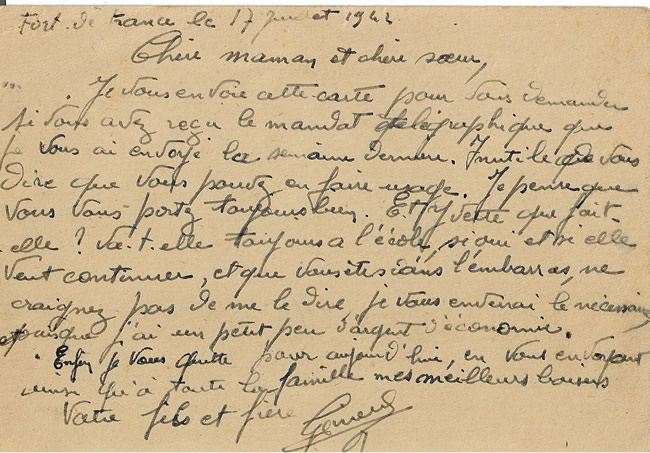 Fort. de France le 17 juillet 1942
Chère maman et chère sœur,
Je vous envoie cette carte pour vous demander
si vous avez reçu le mandat télégraphique que
je vous ai envoyé la semaine dernière. Inutile de vous
dire que vous pouvez en faire usage. Je pense que
vous vous portez toujours bien. Et Yvette que fait-
elle ? Va-t-elle toujours a l'école, si oui et si elle
veut continuer, et que vous êtes dans l'embarras, ne
craignez pas de me le dire je vous enverrai le nécessaire,
puisque j'ai un petit peu d'argent d'économie.
Enfin je vous quitte pour aujourd'hui, en vous envoyant
ainsi qu'à toute la famille mes meilleurs baisers
Votre fils et frère